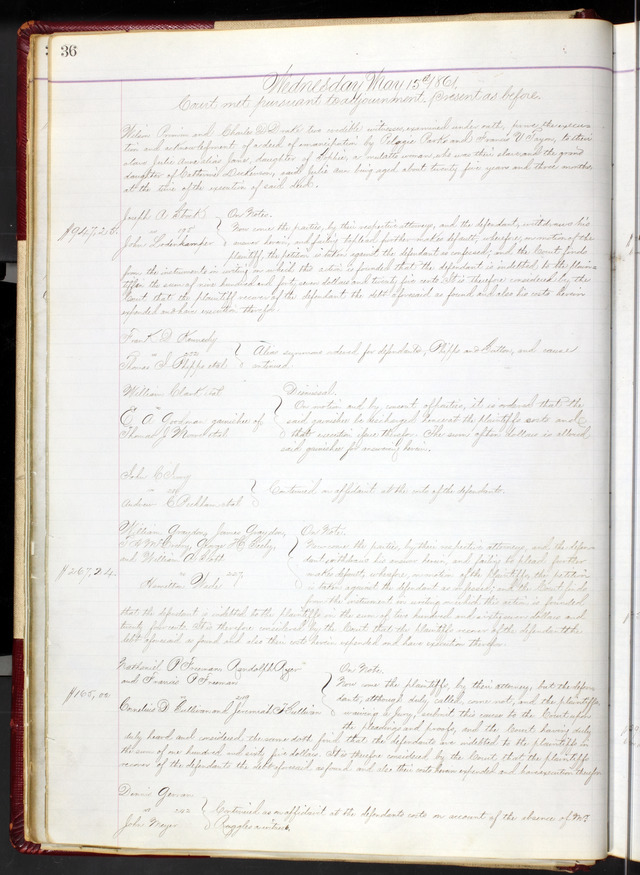 36
Wednesday May 15th 1861.
Court met pursuant to adjournment. Present as before.
and Charles D. Drake two credible witnesses examined under oath, prove the execu-
tion and acknowledgment of a deed of emancipation by Pelagie Park and Francis V. Payn, to their
slave Julie Ann, alias Jane, daughter of Sophie, a mulatto woman who was their slave, and the grand
daughter of Catherine Dickerson, said Julie Ann being aged about twenty five years and three months
at the time of the execution of said deed.
Joseph A.
On Notes.
$947,25
195
Now come the parties, by their respective attorneys, and the defendant, withdraws his
John
answer herein, and failing to plead further makes default, wherefore, on motion of the
plaintiff, the petition is taken against the defendant as confessed, and the Court finds
from the instruments in writing on which this action is founded that the defendant is indebted to the plain-
tiff in the sum of nine hundred and forty seven dollars and twenty five cents. It is therefore considered by the
Court that the plaintiff recover of the defendant the debt aforesaid as found and also his costs herein
expended and have execution therefor.
Frank D. Kennedy
Alias summons ordered for defendants, Phipps and and cause
Thomas S. Phipps et al.
continued.
William Clark et al.
Dismissal.
On motion and by consent of parties, it is ordered that the
E. A. Goodman garnishee of
said garnishee be discharged hence at the plaintiffs costs and
Thomas J. et al
that execution issue therefor. The sum of ten dollars is allowed
said garnishee for answering herein.
John C.
Continued on affidavit at the costs of the defendants.
Andrew C. Peckham et al
William Graydon, James Graydon,
On Note.
George H.
Now come the parties, by their respective attorneys, and the defen-
and William A.
dant withdraws his answer herein, and failing to plead further
$267,24.
makes default, wherefore, on motion of the plaintiffs, the petition
Hamilton
227
is taken against the defendant as confessed; and the Court finds
from the instrument in writing on which this action is founded
that the defendant is indebted to the plaintiffs in the sum of two hundred and sixty seven dollars and
twenty four cents. It is therefore considered by the Court that the plaintiffs recover of the defendant the
debt aforesaid as found and also their costs herein expended and have execution therefor.
Nathaniel P. Freeman, Randolph
On Note.
and Francis P. Freeman
Now come the plaintiffs, by their attorney, but the defen-
$165,00
dants, although duly called, come not, and the plaintiffs
Cornelius D. Sullivan and Jeremiah F. Sullivan
waiving a jury, submit this cause to the Court upon
the pleadings and proofs, and the Court having duly
duly heard and considered the same doth find that the defendants are indebted to the plaintiffs in
the sum of one hundred and sixty five dollars. It is therefore considered by the Court, that the plaintiffs
recover of the defendants the debt aforesaid as found and also their costs herein expended and have execution therefor.
Dennis
242
Continued on affidavit at the defendants costs on account of the absence of Mr
John Meyer
Ruggles a witness.